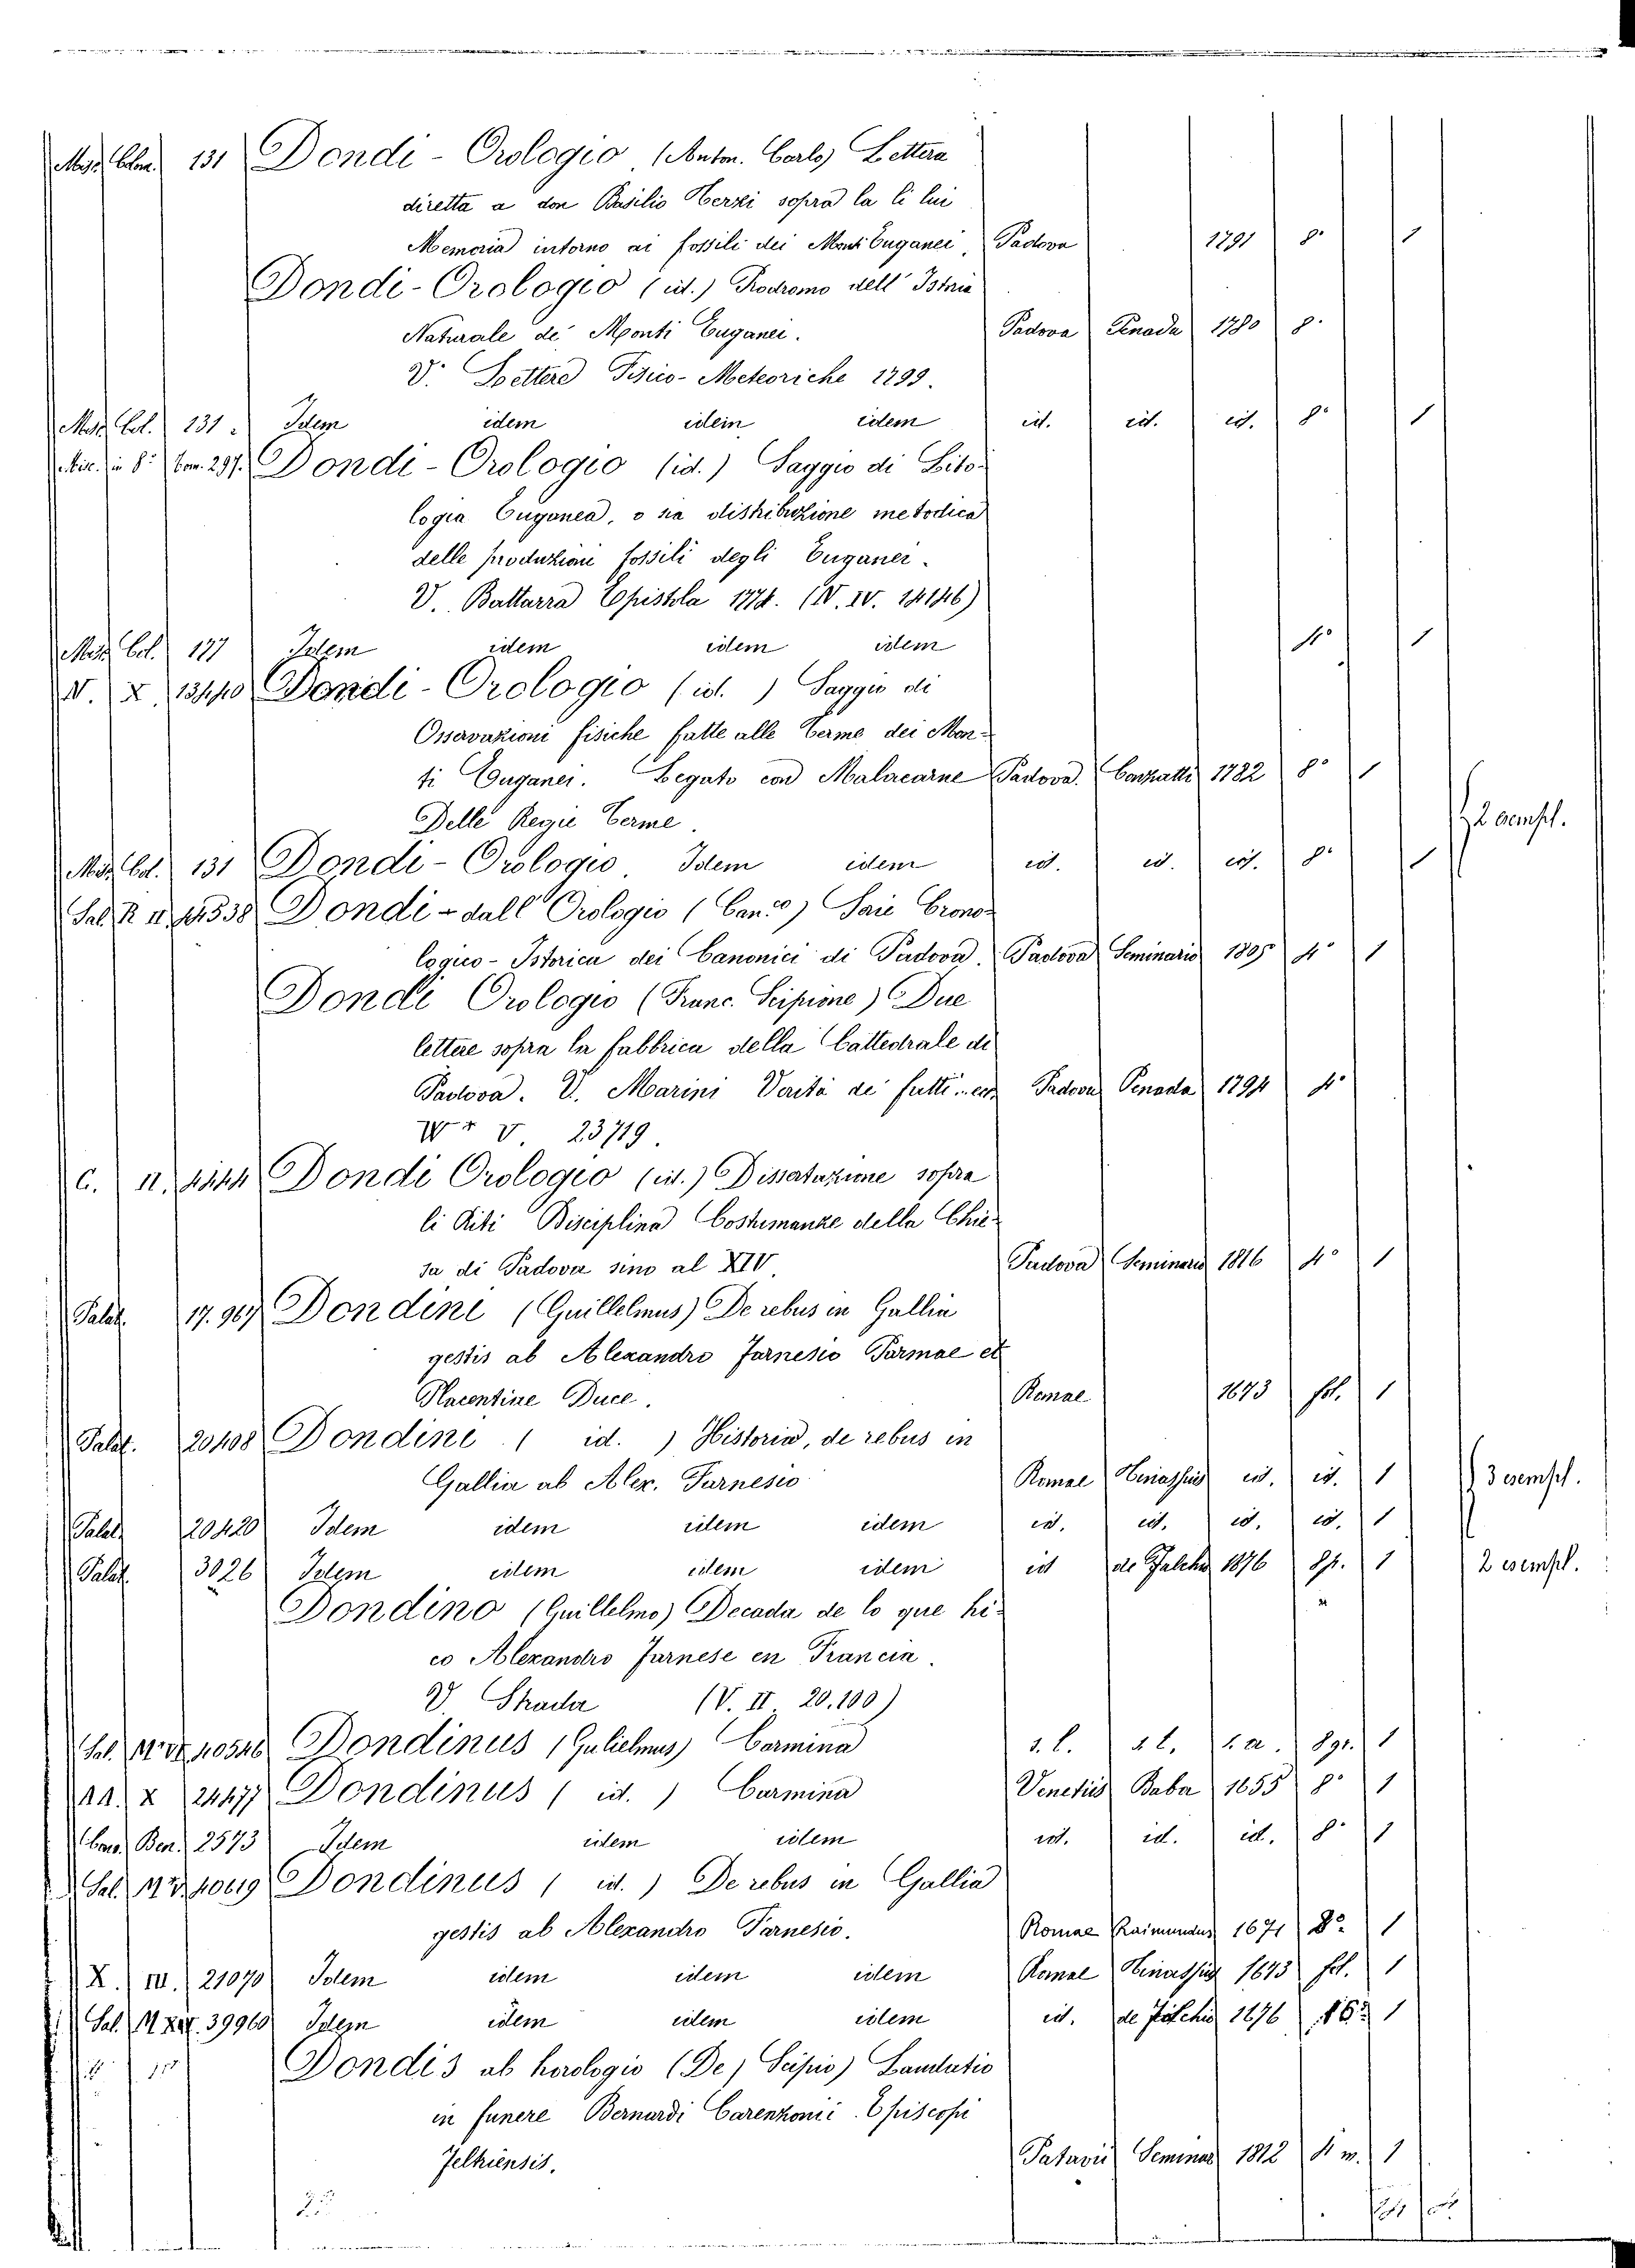 Misc. Colom. 131 Dondi - Orologio (Anton. Carlo) Lettera
diretta a don Basilio Terzi sopra la li lui
Memoria intorno ai fossili dei Monti Euganei, Padova 1791 8° 1
Dondi - Orologio (id.) Prodromo dell' Istoria
Naturale de' Monti Euganei. Padova Penada 1780 8.
V. Lettere Fisico-Meteoriche 1799.
Misc. Col. 131. Idem idem idem idem id. id. id. 8° 1
Misc. in 8° tom. 297. Dondi - Orologio (id.) Saggio di Lito-
logia Euganea, o sia distribuzione metodica
delle produzioni fossili degli Euganei.
V. Battarra Epistola 1774. (IV. IV. 14146)
Misc. Col. 127 Idem idem idem idem 4° 1
IV. X. 13440 Dondi - Orologio (id.) Saggio di
Osservazioni fisiche fatte alle Terme dei Mon-
ti Euganei. Legato con Malacarne Padova. Conzatti 1782 8° 1
Delle Regie Terme. 2 esempl.
Misc. Col. 131 Dondi - Orologio Idem idem id. id. id. 8° 1
Sal. R. II. 44538 Dondi - dall' Orologio (Can.co) Serie Crono-
logico - Istorica dei Canonici di Padova. Padova Seminario 1805 4° 1
Dondi Orologio (Franc. Scipione) Due
lettere sopra la fabbrica della Cattedrale di
Padova. V. Marini Verità de' fatti ec. Padova Penada 1794 4°
V. 23719.
C. II. 4444 Dondi Orologio (id.) Dissertazione sopra
li Riti Disciplina Costumanze della Chie-
sa di Padova sino al XIV Padova Seminario 1816 4° 1
Palat. 17.967 Dondini (Guillelmus) De rebus in Gallia
gestis ab Alexandro Farnesio Parmae et
Placentiae Duce. Romae 1673 fol. 1
Palat. 20408 Dondini (id.) Historia, de rebus in
Gallia ab Alex. Farnesio Romae id. id. 1 3 esempl.
Palat. 20420 Idem idem idem idem id. id. id. id. 1
Palat. 3026 Idem idem idem idem id de Falchis 1676 8p. 1 2 esempl.
Dondino (Guillelmo) Decada de lo que hi-
co Alexandro Farnese en Francia.
V. Strada (V. II. 20.100)
Sal. 40546 Dondinus (Gulielmus) Carmina s. l. s. l. s. a. 8gr. 1
AA. X 24477 Dondinus (id.) Carmina Venetiis Baba 1655 8° 1
Ben. 2573 Idem idem idem id. id. id. 8° 1
Sal. Dondinus (id.) De rebus in Gallia
gestis ab Alexandro Farnesio. Romae Raimundus 1671 8° 1
X. III. 21070 Idem idem idem idem Romae 1673 fol. 1
Sal. 39960 Idem idem idem idem id. de Falchis 1676 16° 1
Dondis ab horologio (De) Scipio) Laudatio
in funere Bernardi Carenzonii Episcopi
Feltriensis. Patavii Seminar 1812 4 m. 1